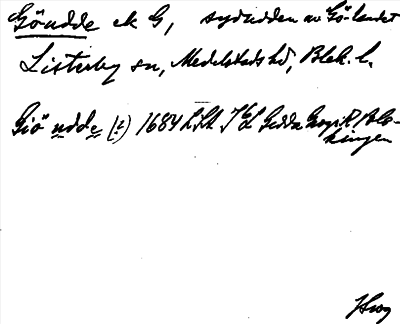 Göudde ek G, sydudden av Gö-landet
Listerby sn, Medelstads hd, Blek. l.
Giö udde (?) 1684 LSA Gedda
kingen